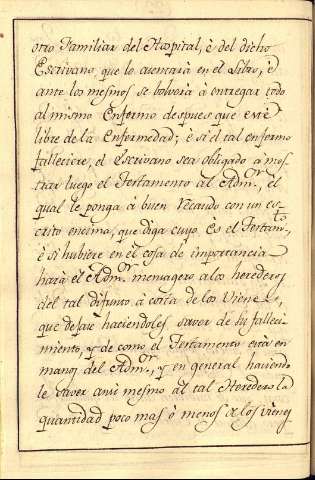 otro Familiar del Hospital, è del dicho
Escrivano, que lo asentarà en el Libro, è
ante los mesmos se bolverà à entregar todo
al mismo Enfermo despues que estè
libre de la Enfermedad; è si el tal enfermo
falleciere, el Escrivano sea obligado à mos-
trar luego el Testamento al Adm.ºr, el
qual le ponga à buen Recaudo con un es-
crito encima, que diga cuyo Es el Testam.to,
è si hubiere en el cosa de importancia
harà el Adm.ºr mensagero a los herederos
del tal difunto à costa de los Vienes,
que dejare haciendoles saver de su falleci-
miento, y de como el Testamento està en
manos del Adm.ºr, y en general haciendo
le saver ansi mesmo al tal Heredero la
quantidad poco mas ò menos de los vienes